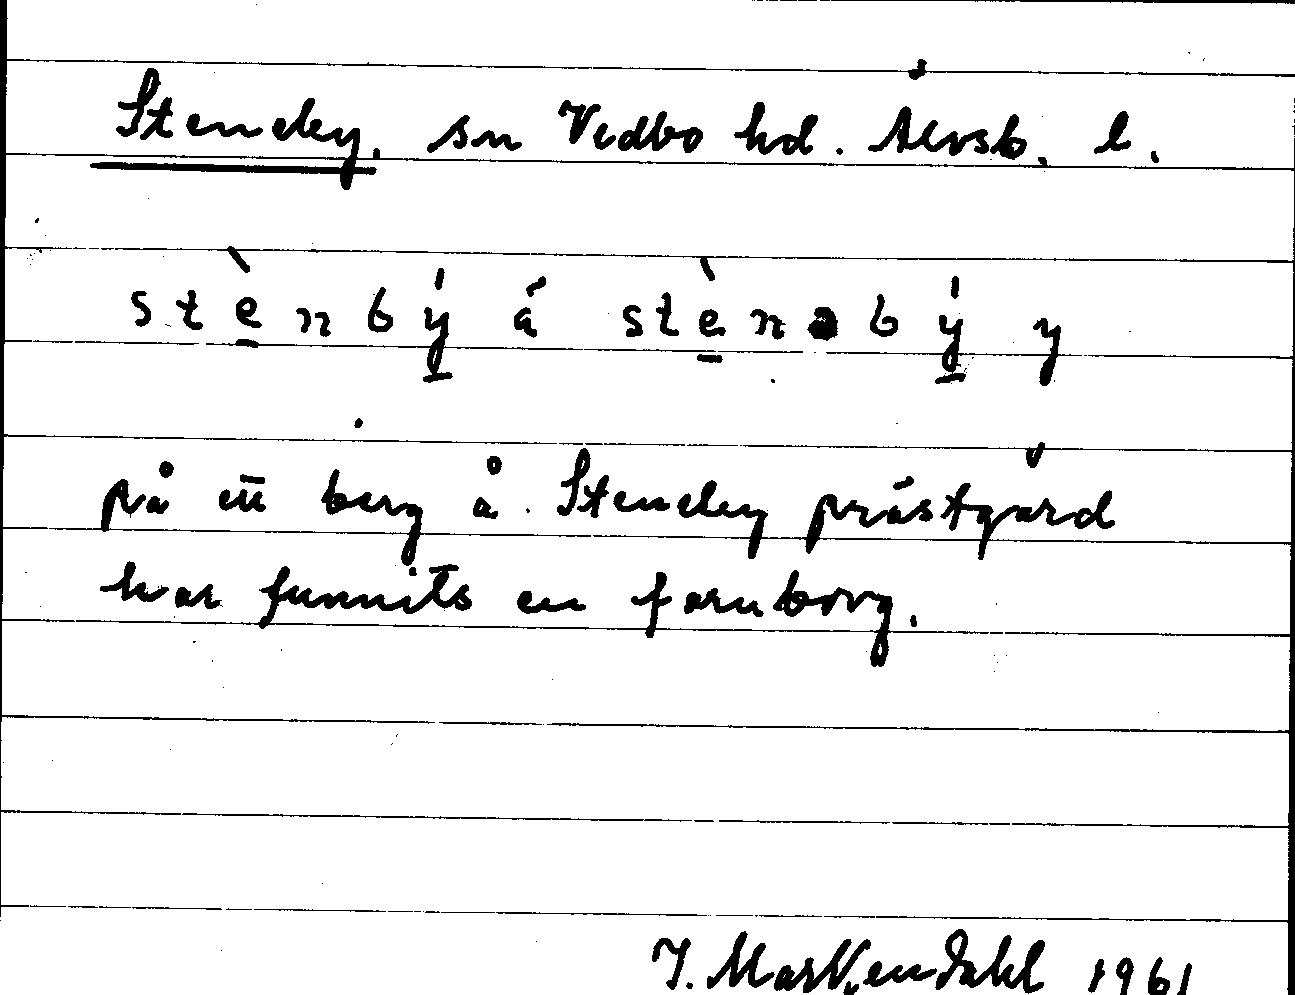 Steneby. sn Vedbo hd. Älvsb. l.
stè̱nbý̱ á stè̱nəbý̱ y
på ett berg å Steneby prästgård
har funnits en fornborg.
J. Markendahl 1961